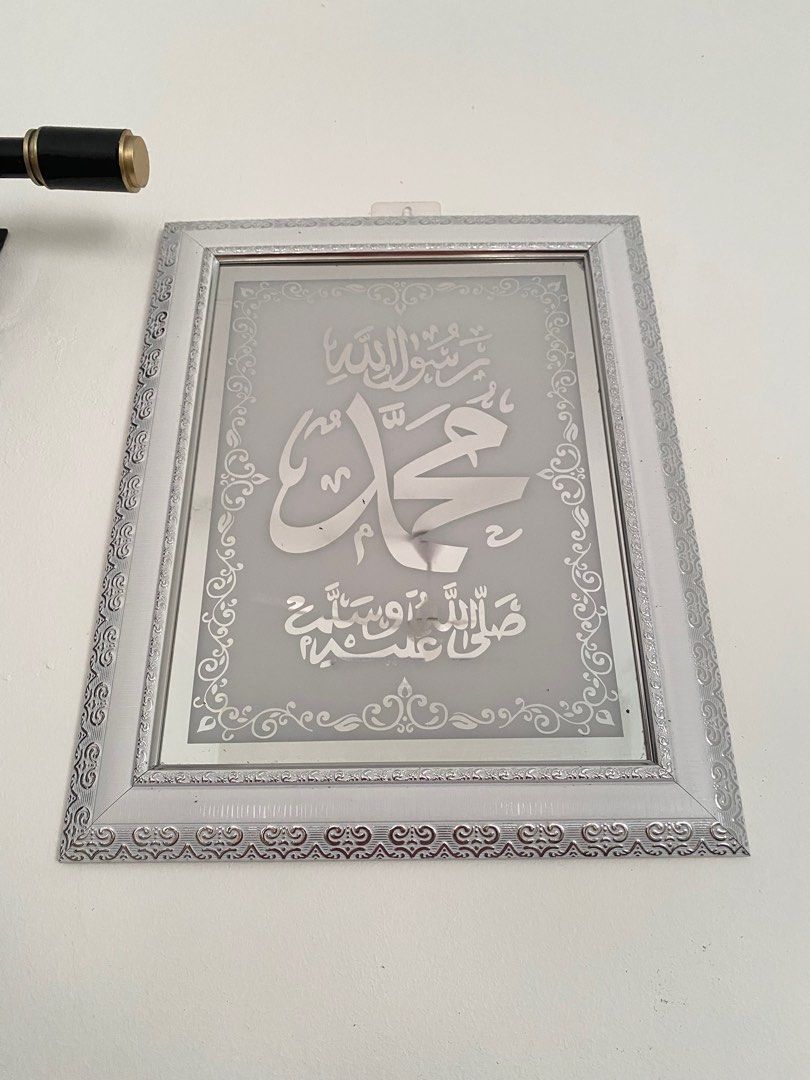 رَسُوْلُ اللَّهِ
مُحَمَّدٌ
صَلَّى اللَّهُ عَلَيْهِ وَسَلَّمَ